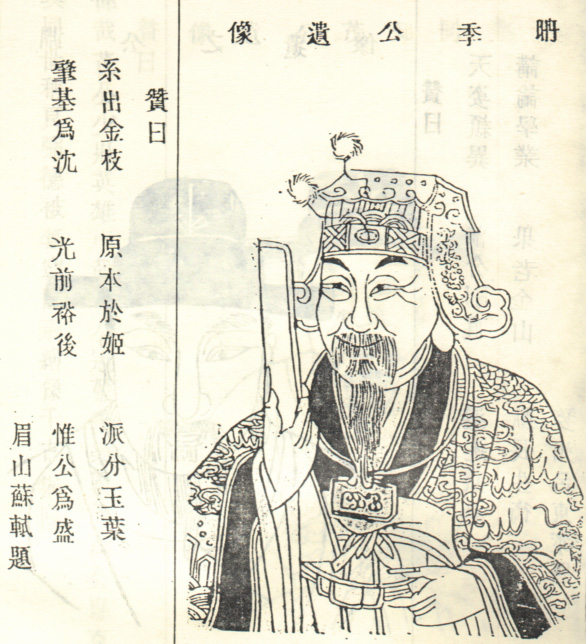 耼季公遺像
贊曰
系出金枝 原本於姬 派分玉葉
肇基爲沈 光前裕後 惟公爲盛
眉山蘇軾題